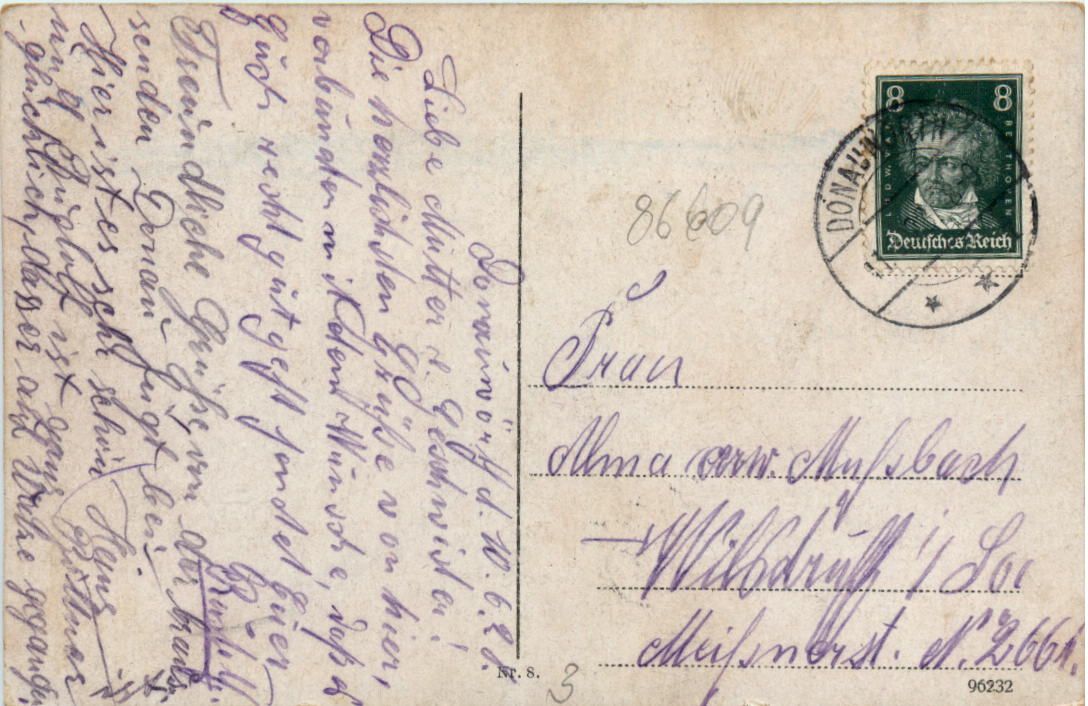 Donauwörth d. 10. 6. 28.
Liebe Mutter u. Geschwister!
Die herzlichsten Grüße von hier,
verbunden mit dem Wunsche, daß
Euch recht gut geht sendet Euer
Rudolf.
Freundliche Grüße von der
senden Donau
Hier ist es sehr schön Hans
und Rudolf ist ganz
glücklich, dass er auf
86609
8 8
LUDWIG
BEETHOVEN
Deutsches Reich
DONAUWÖRTH
Frau
Alma verw. Mußbach
Wilsdruff i/ Sa
Meißnerst. N. 266
Nr. 8.
3
96232